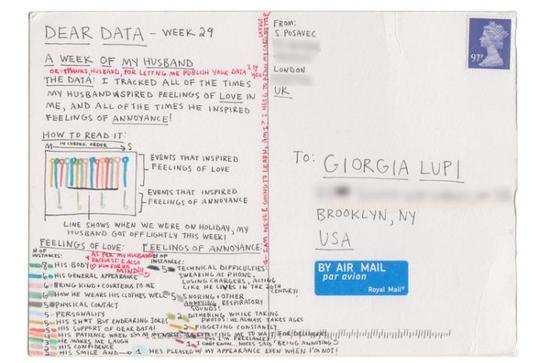 DEAR DATA - WEEK 29
A WEEK OF MY HUSBAND
OR: THANKS, HUSBAND, FOR LETTING ME PUBLISH YOUR DATA
THE DATA: I TRACKED ALL OF THE TIMES
MY HUSBAND INSPIRED FEELINGS OF LOVE IN
ME, AND ALL OF THE TIMES HE INSPIRED
FEELINGS OF ANNOYANCE!
HOW TO READ IT:
M IN CHRON. ORDER S
EVENTS THAT INSPIRED
FEELINGS OF LOVE
EVENTS THAT INSPIRED
FEELINGS OF ANNOYANCE
LINE SHOWS WHEN WE WERE ON HOLIDAY, MY
HUSBAND GOT OFF LIGHTLY THIS WEEK!
FEELINGS OF LOVE:
# OF INSTANCES:
HIS BODY
AS PER MY HUSBAND'S
HIS GENERAL APPEARANCE
BEING KIND + COURTEOUS TO ME
HOW HE WEARS HIS CLOTHES WELL
PHYSICAL CONTACT
5- PERSONALITY
HIS BUT ENDEARING JOKES
HIS SUPPORT OF DEAR DATA!
HIS PATIENCE WHEN
HE MAKES ME LAUGH
HIS CONFIDENCE
HIS SMILE AND
FEELINGS OF ANNOYANCE:
# OF INSTANCES:
5 TECHNICAL DIFFICULTIES:
SWEARING AT PHONE,
LOSING CHARGERS, ACTING
LIKE HE LIVES IN THE
CENTURY!
5 SNORING + OTHER
ANNOYING RESPIRATORY
SOUNDS!
2 DITHERING WHILE TAKING
PHOTOS: HE ALWAYS TAKES AGES
2 FIDGETING CONSTANTLY
1 NOTES HIS BEING ANNOYING
1 HE'S PLEASED W/ MY APPEARANCE EVEN WHEN I'M NOT!
FROM:
S. POSAVEC
LONDON
UK
97P
TO: GIORGIA LUPI
BROOKLYN, NY
USA
BY AIR MAIL
par avion
Royal Mail